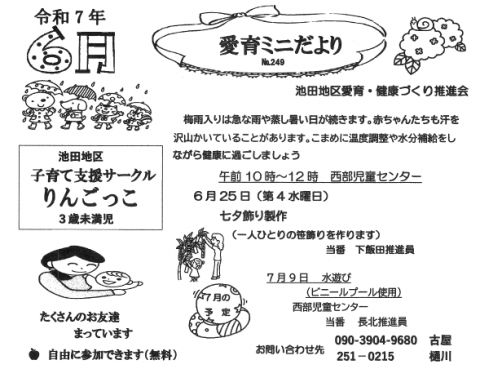 令和7年
6月
愛育ミニだより
№249
池田地区愛育・健康づくり推進会
梅雨入りは急な雨や蒸し暑い日が続きます。赤ちゃんたちも汗を
沢山かいていることがあります。こまめに温度調整や水分補給をし
ながら健康に過ごしましょう
池田地区
子育て支援サークル
りんごっこ
3歳未満児
午前10時～12時　西部児童センター
6月25日（第4水曜日）
七夕飾り製作
（一人ひとりの笹飾りを作ります）
当番　下飯田推進員
7月の
予定
7月9日　水遊び
（ビニールプール使用）
西部児童センター
当番　長北推進員
たくさんのお友達
まっています
自由に参加できます（無料）
お問い合わせ先
090-3904-9680　古屋
251－0215　樋川